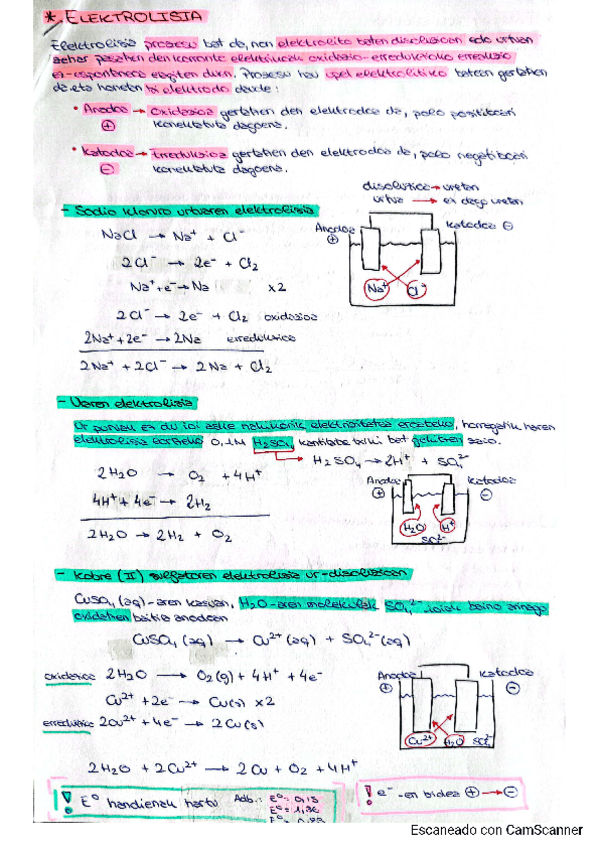 *. ELEKTROLISIA
Elektrolisia prozesu bat da, non elektrolito baten disoluzioan edo urtuan
zehar pasatzen den korronte elektrikoak oxidazio-erredukzioko erreakzio
ez-espontaneoa eragiten duen. Prozesu hau upel elektrolitiko batean gertatzen
da eta honetan bi elektrodo daude:
• Anodoa → Oxidazioa gertatzen den elektrodoa da, polo positiboari
⊕ konektatuta dagoena.
• Katodoa → Erredukzioa gertatzen den elektrodoa da, polo negatiboari
⊖ konektatuta dagoena.
disoluzioa → uretan
urtua → ez dago uretan
- Sodio kloruro urtuaren elektrolisia
Anodoa ⊕ Katodoa ⊖
NaCl → Na⁺ + Cl⁻
2Cl⁻ → 2e⁻ + Cl₂
Na⁺ + e⁻ → Na x2
Na⁺ Cl⁻
2Cl⁻ → 2e⁻ + Cl₂ oxidazioa
2Na⁺ + 2e⁻ → 2Na erredukzioa
2Na⁺ + 2Cl⁻ → 2Na + Cl₂
- Uraren elektrolisia
Ur puruak ez du ioi aske nahikorik elektrizitatea eroateko, horregatik haren
elektrolisia lortzeko 0,1M H₂SO₄ kantitate txiki bat gehitzen zaio.
H₂SO₄ → 2H⁺ + SO₄²⁻
2H₂O → O₂ + 4H⁺
4H⁺ + 4e⁻ → 2H₂
2H₂O → 2H₂ + O₂
Anodoa ⊕ Katodoa ⊖
H₂O H⁺
SO₄²⁻
- Kobre (II) sulfatoren elektrolisia ur-disoluzioan
CuSO₄ (aq)-aren kasuan, H₂O-aren molekulak SO₄²⁻ ioiak baino errazago
oxidatzen baitira anodoan
CuSO₄ (aq) → Cu²⁺ (aq) + SO₄²⁻ (aq)
oxidazioa 2H₂O → O₂(g) + 4H⁺ + 4e⁻
Cu²⁺ + 2e⁻ → Cu(s) x2
erredukzioa 2Cu²⁺ + 4e⁻ → 2Cu(s)
Anodoa ⊕ Katodoa ⊖
Cu²⁺ H₂O SO₄²⁻
2H₂O + 2Cu²⁺ → 2Cu + O₂ + 4H⁺
! E⁰ handienak hartu Adb.: E⁰=
E⁰=
! e⁻-en bidea ⊕ → ⊖
Escaneado con CamScanner